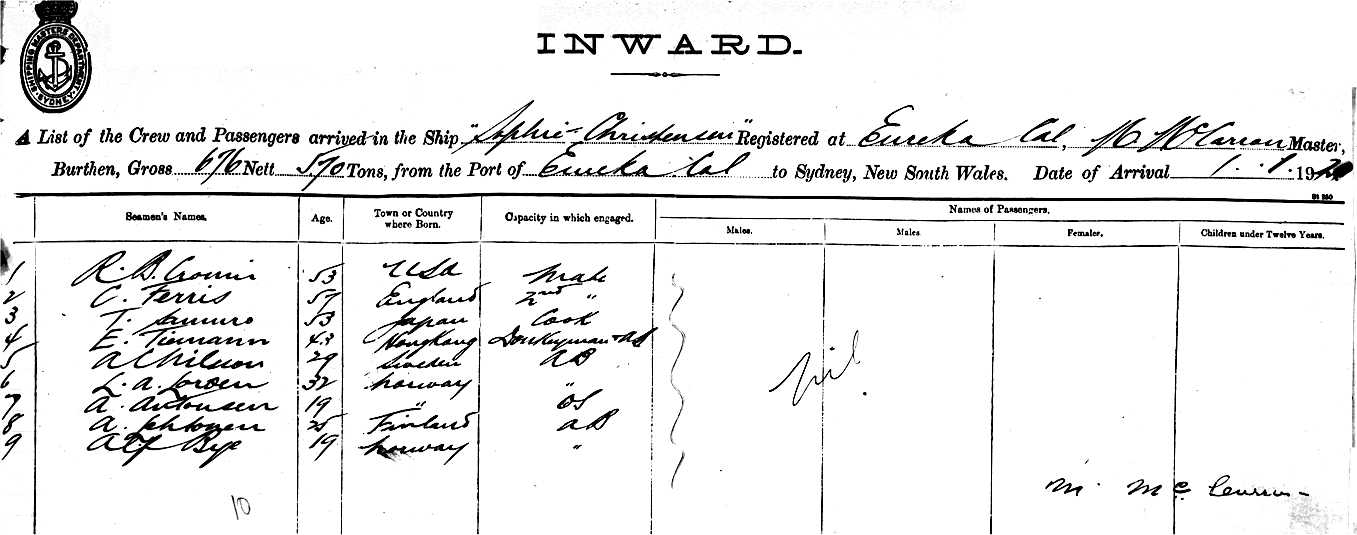 SHIPPING MASTERS DEPARTMENT. SYDNEY.
INWARD.
A List of the Crew and Passengers arrived in the Ship "Sophie Christensen" Registered at Eureka Cal, M McCarron Master,
Burthen, Gross 676 Nett 570 Tons, from the Port of Eureka Cal to Sydney, New South Wales. Date of Arrival 1.1.1921
Seamen's Names. Age. Town or Country where Born. Capacity in which engaged. Names of Passengers.
Males. Males. Females. Children under Twelve Years.
1 R. B. Cronin 53 USA Mate
2 C. Ferris 57 England 2nd "
3 T. 53 Japan Cook
4 E. Tiemann 43 HongKong Donkeyman & AB
5 A 29 Sweden AB
6 L. A. 32 Norway "
7 A. Antonsen 19 " OS
8 A. 25 Finland AB
9 Alf Bye 19 Norway "
Nil
M. Mc
10